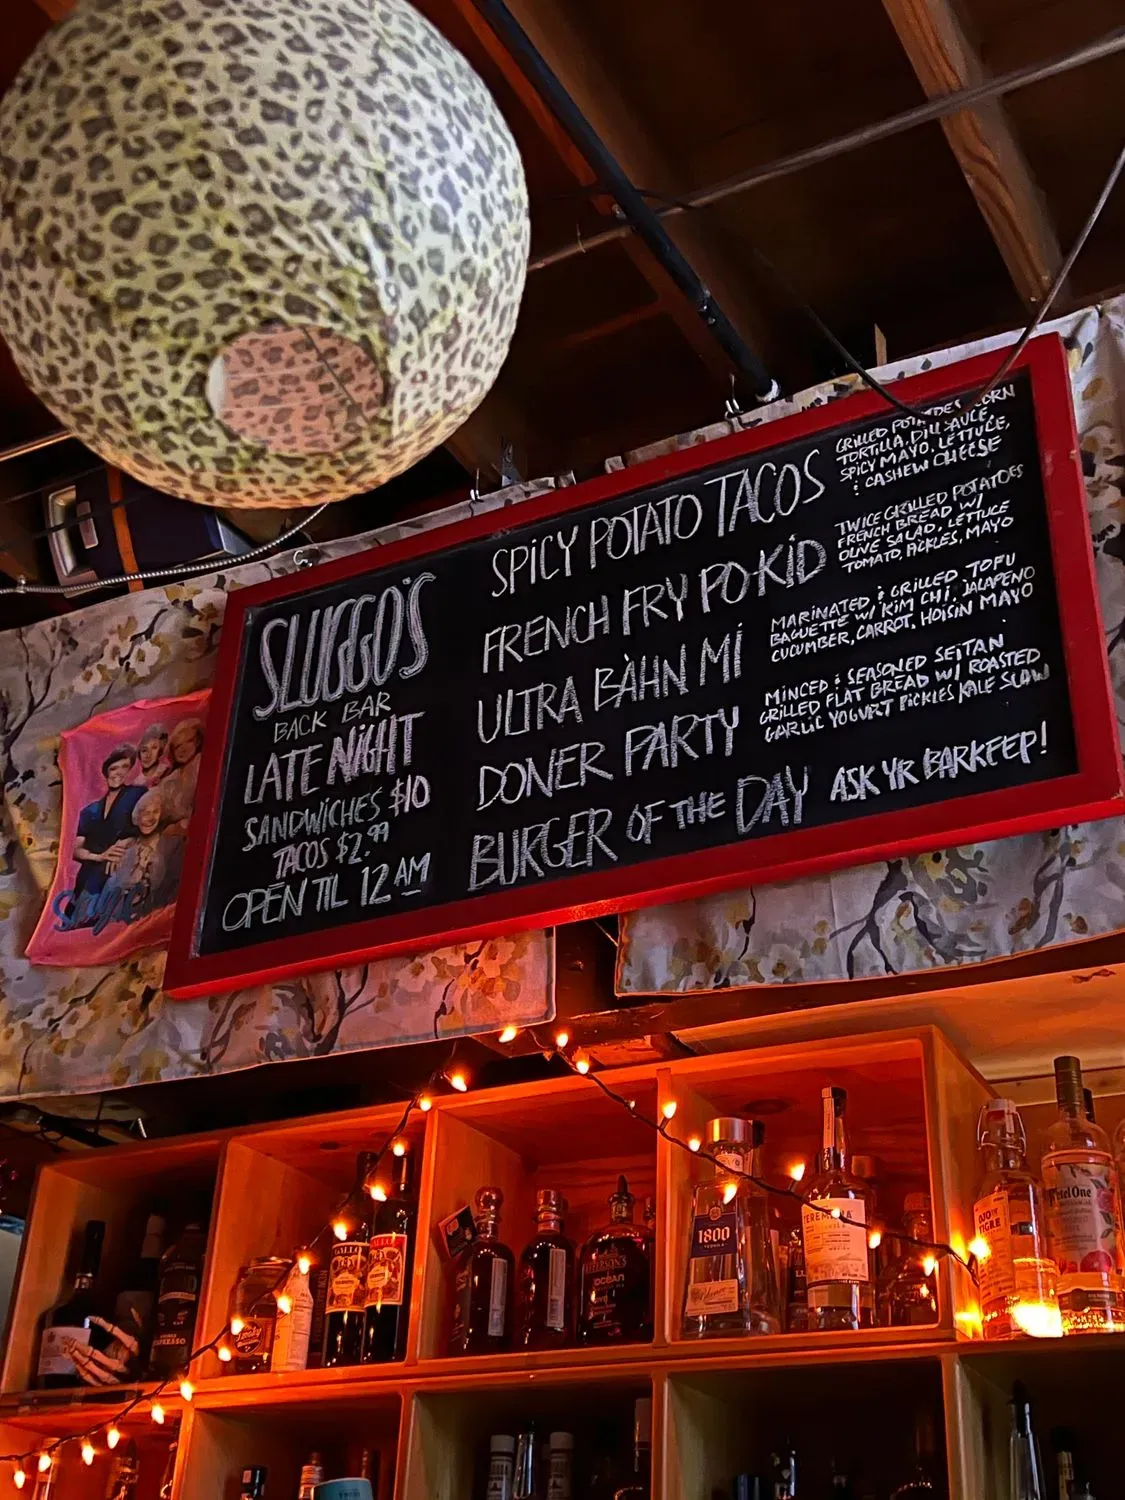 SLUGGO'S
BACK BAR
LATE NIGHT
SANDWICHES $10
TACOS $2.99
OPEN TIL 12 AM
SPICY POTATO TACOS
GRILLED POTATOES CORN
TORTILLA, DILL SAUCE,
SPICY MAYO, LETTUCE,
& CASHEW CHEESE
FRENCH FRY PO-KID
TWICE GRILLED POTATOES
FRENCH BREAD W/
OLIVE SALAD, LETTUCE
TOMATO, PICKLES, MAYO
ULTRA BÀHN MÍ
MARINATED & GRILLED TOFU
BAGUETTE W/ KIM CHI, JALAPENO
CUCUMBER, CARROT, HOISIN MAYO
DONER PARTY
MINCED & SEASONED SEITAN
GRILLED FLAT BREAD W/ ROASTED
GARLIC YOGURT PICKLES KALE SLAW
BURGER OF THE DAY
ASK YR BARKEEP!
GALLO
GALLO
ESPRESSO
Smoky
OCEAN
1800
TEQUILA
OJO DE
TIGRE
Ketel One